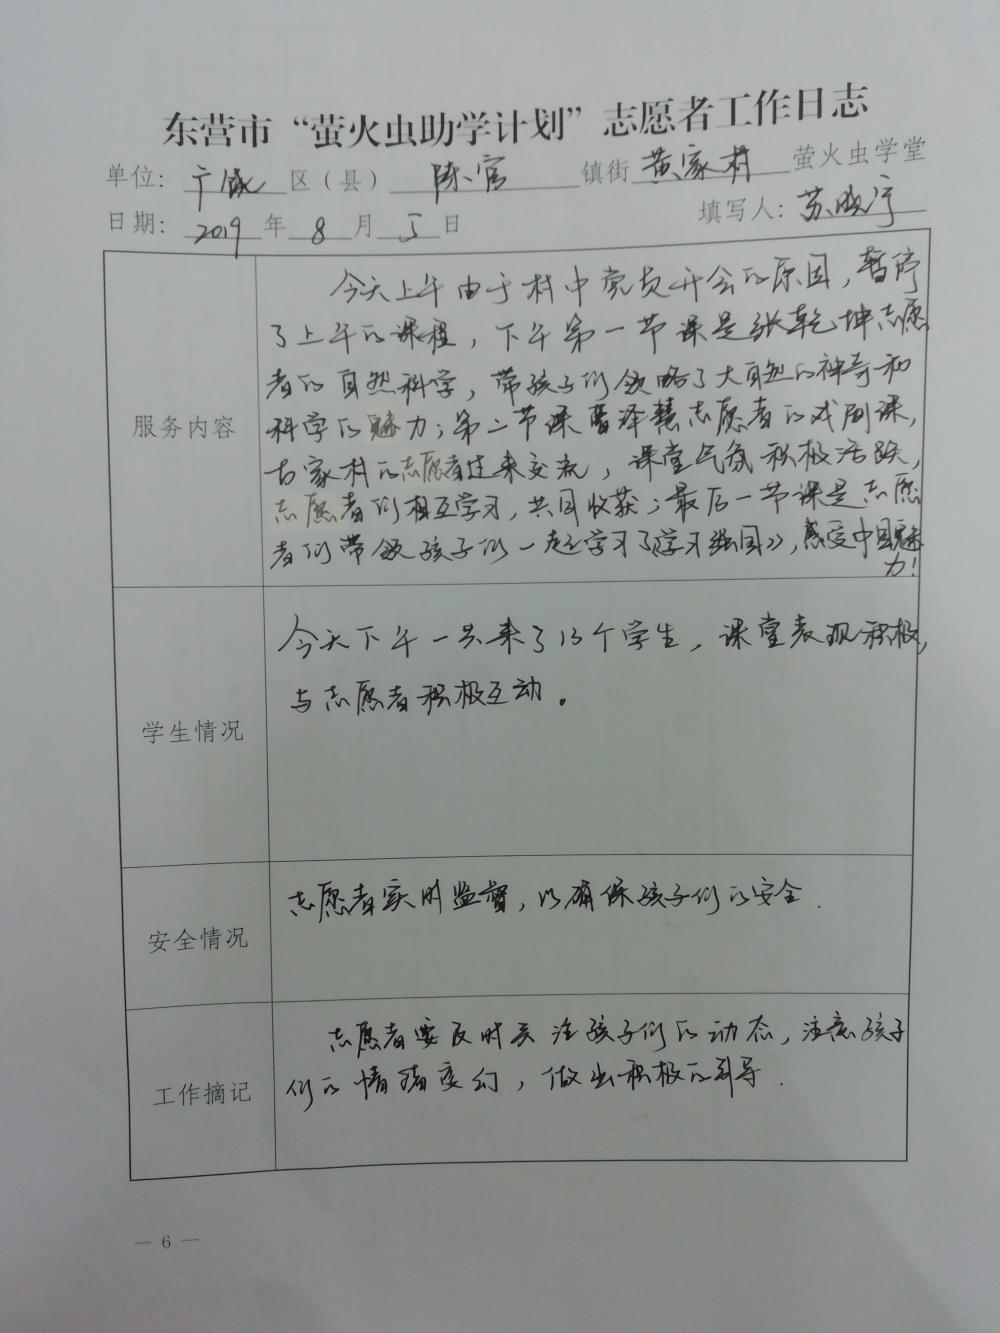 东营市“萤火虫助学计划”志愿者工作日志
单位：广饶区（县）陈官镇街黄家村萤火虫学堂
日期：2019年8月5日 填写人：苏晓宇
服务内容
今天上午由于村中党员开会的原因，暂停
了上午的课程，下午第一节课是张乾坤志愿
者的自然科学，带孩子们领略了大自然的神奇和
科学的魅力；第二节课曹泽慧志愿者的戏剧课，
古家村的志愿者过来交流，课堂气氛积极活跃，
志愿者们相互学习，共同收获；最后一节课是志愿
者们带领孩子们一起学习了《学习强国》，感受中国魅
力！
学生情况
今天下午一共来了13个学生，课堂表现积极，
与志愿者积极互动。
安全情况
志愿者实时监督，以确保孩子们的安全.
工作摘记
志愿者要及时关注孩子们的动态，注意孩子
们的情绪变幻，做出积极的引导.
— 6 —